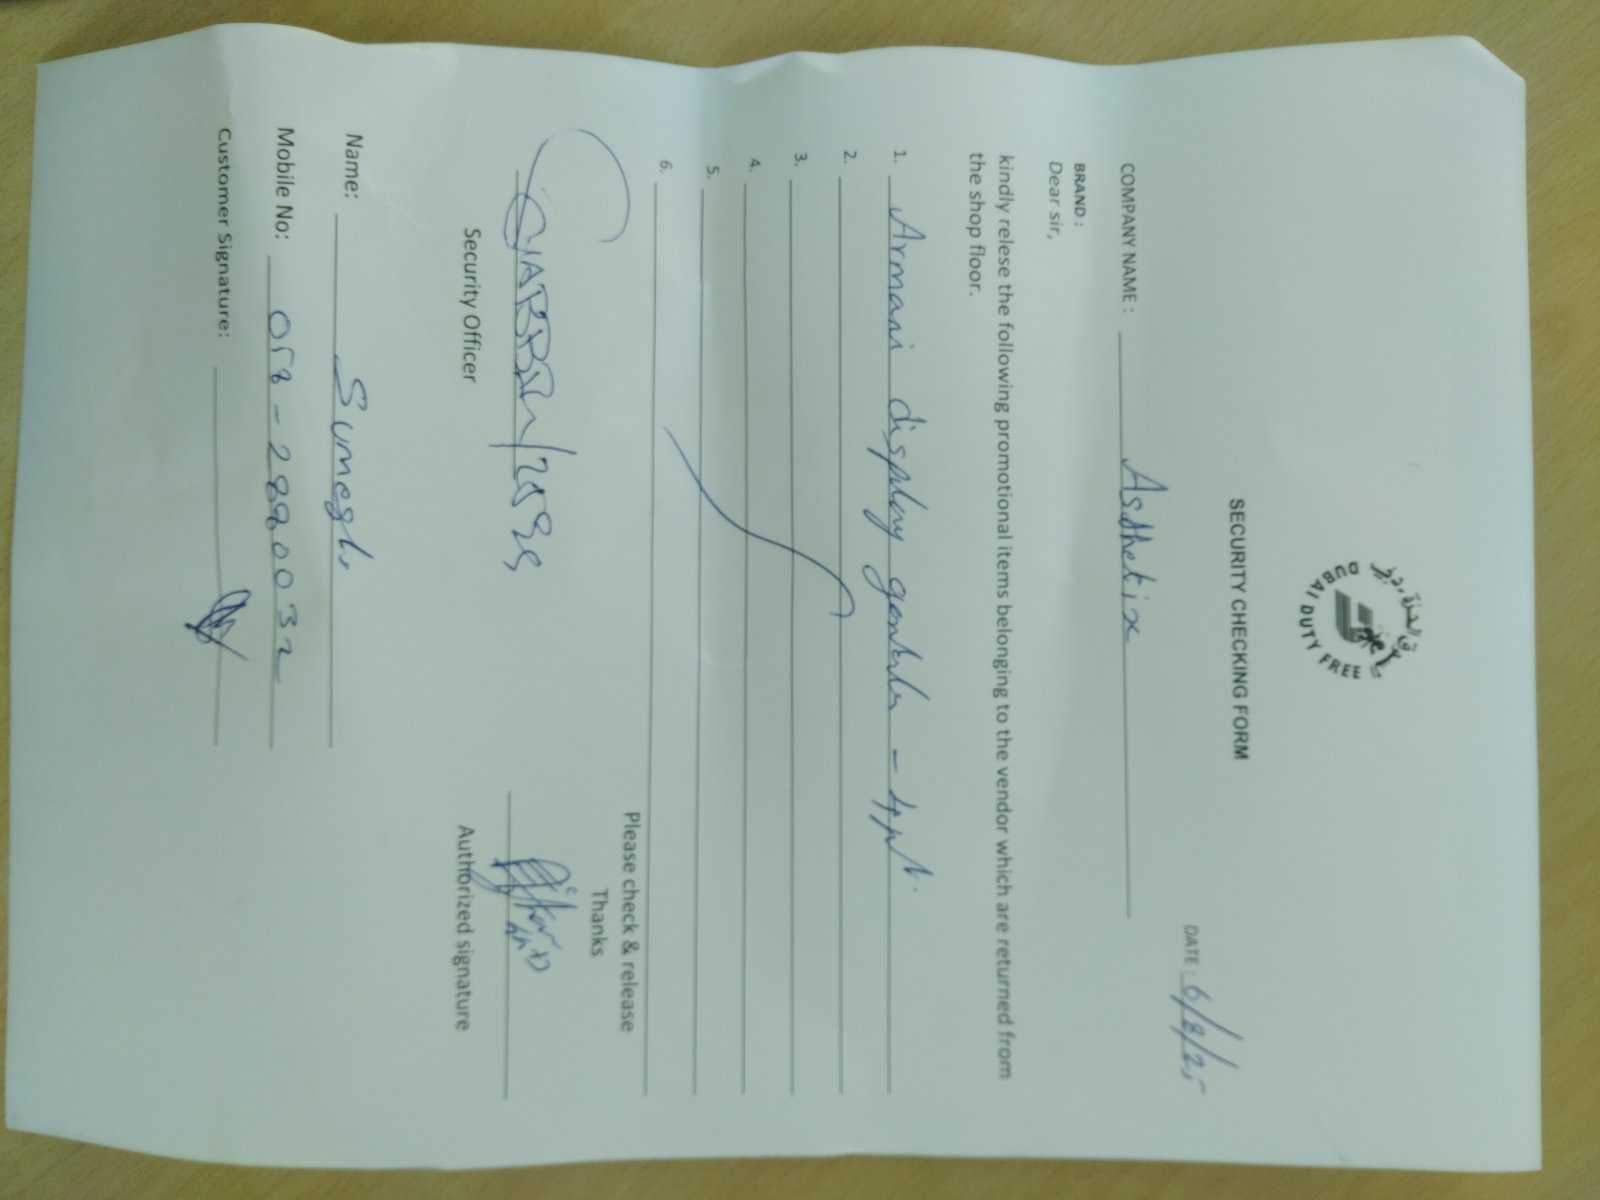 السوق الحرة دبي
DUBAI DUTY FREE
SECURITY CHECKING FORM
DATE : 6/8/25
COMPANY NAME : Asthetix
BRAND :
Dear sir,
kindly relese the following promotional items belonging to the vendor which are returned from
the shop floor.
1. Armani display
2.
3.
4.
5.
6.
Please check & release
Thanks
Security Officer
Authorized signature
Name: Sumesh
Mobile No: 058-2880032
Customer Signature: